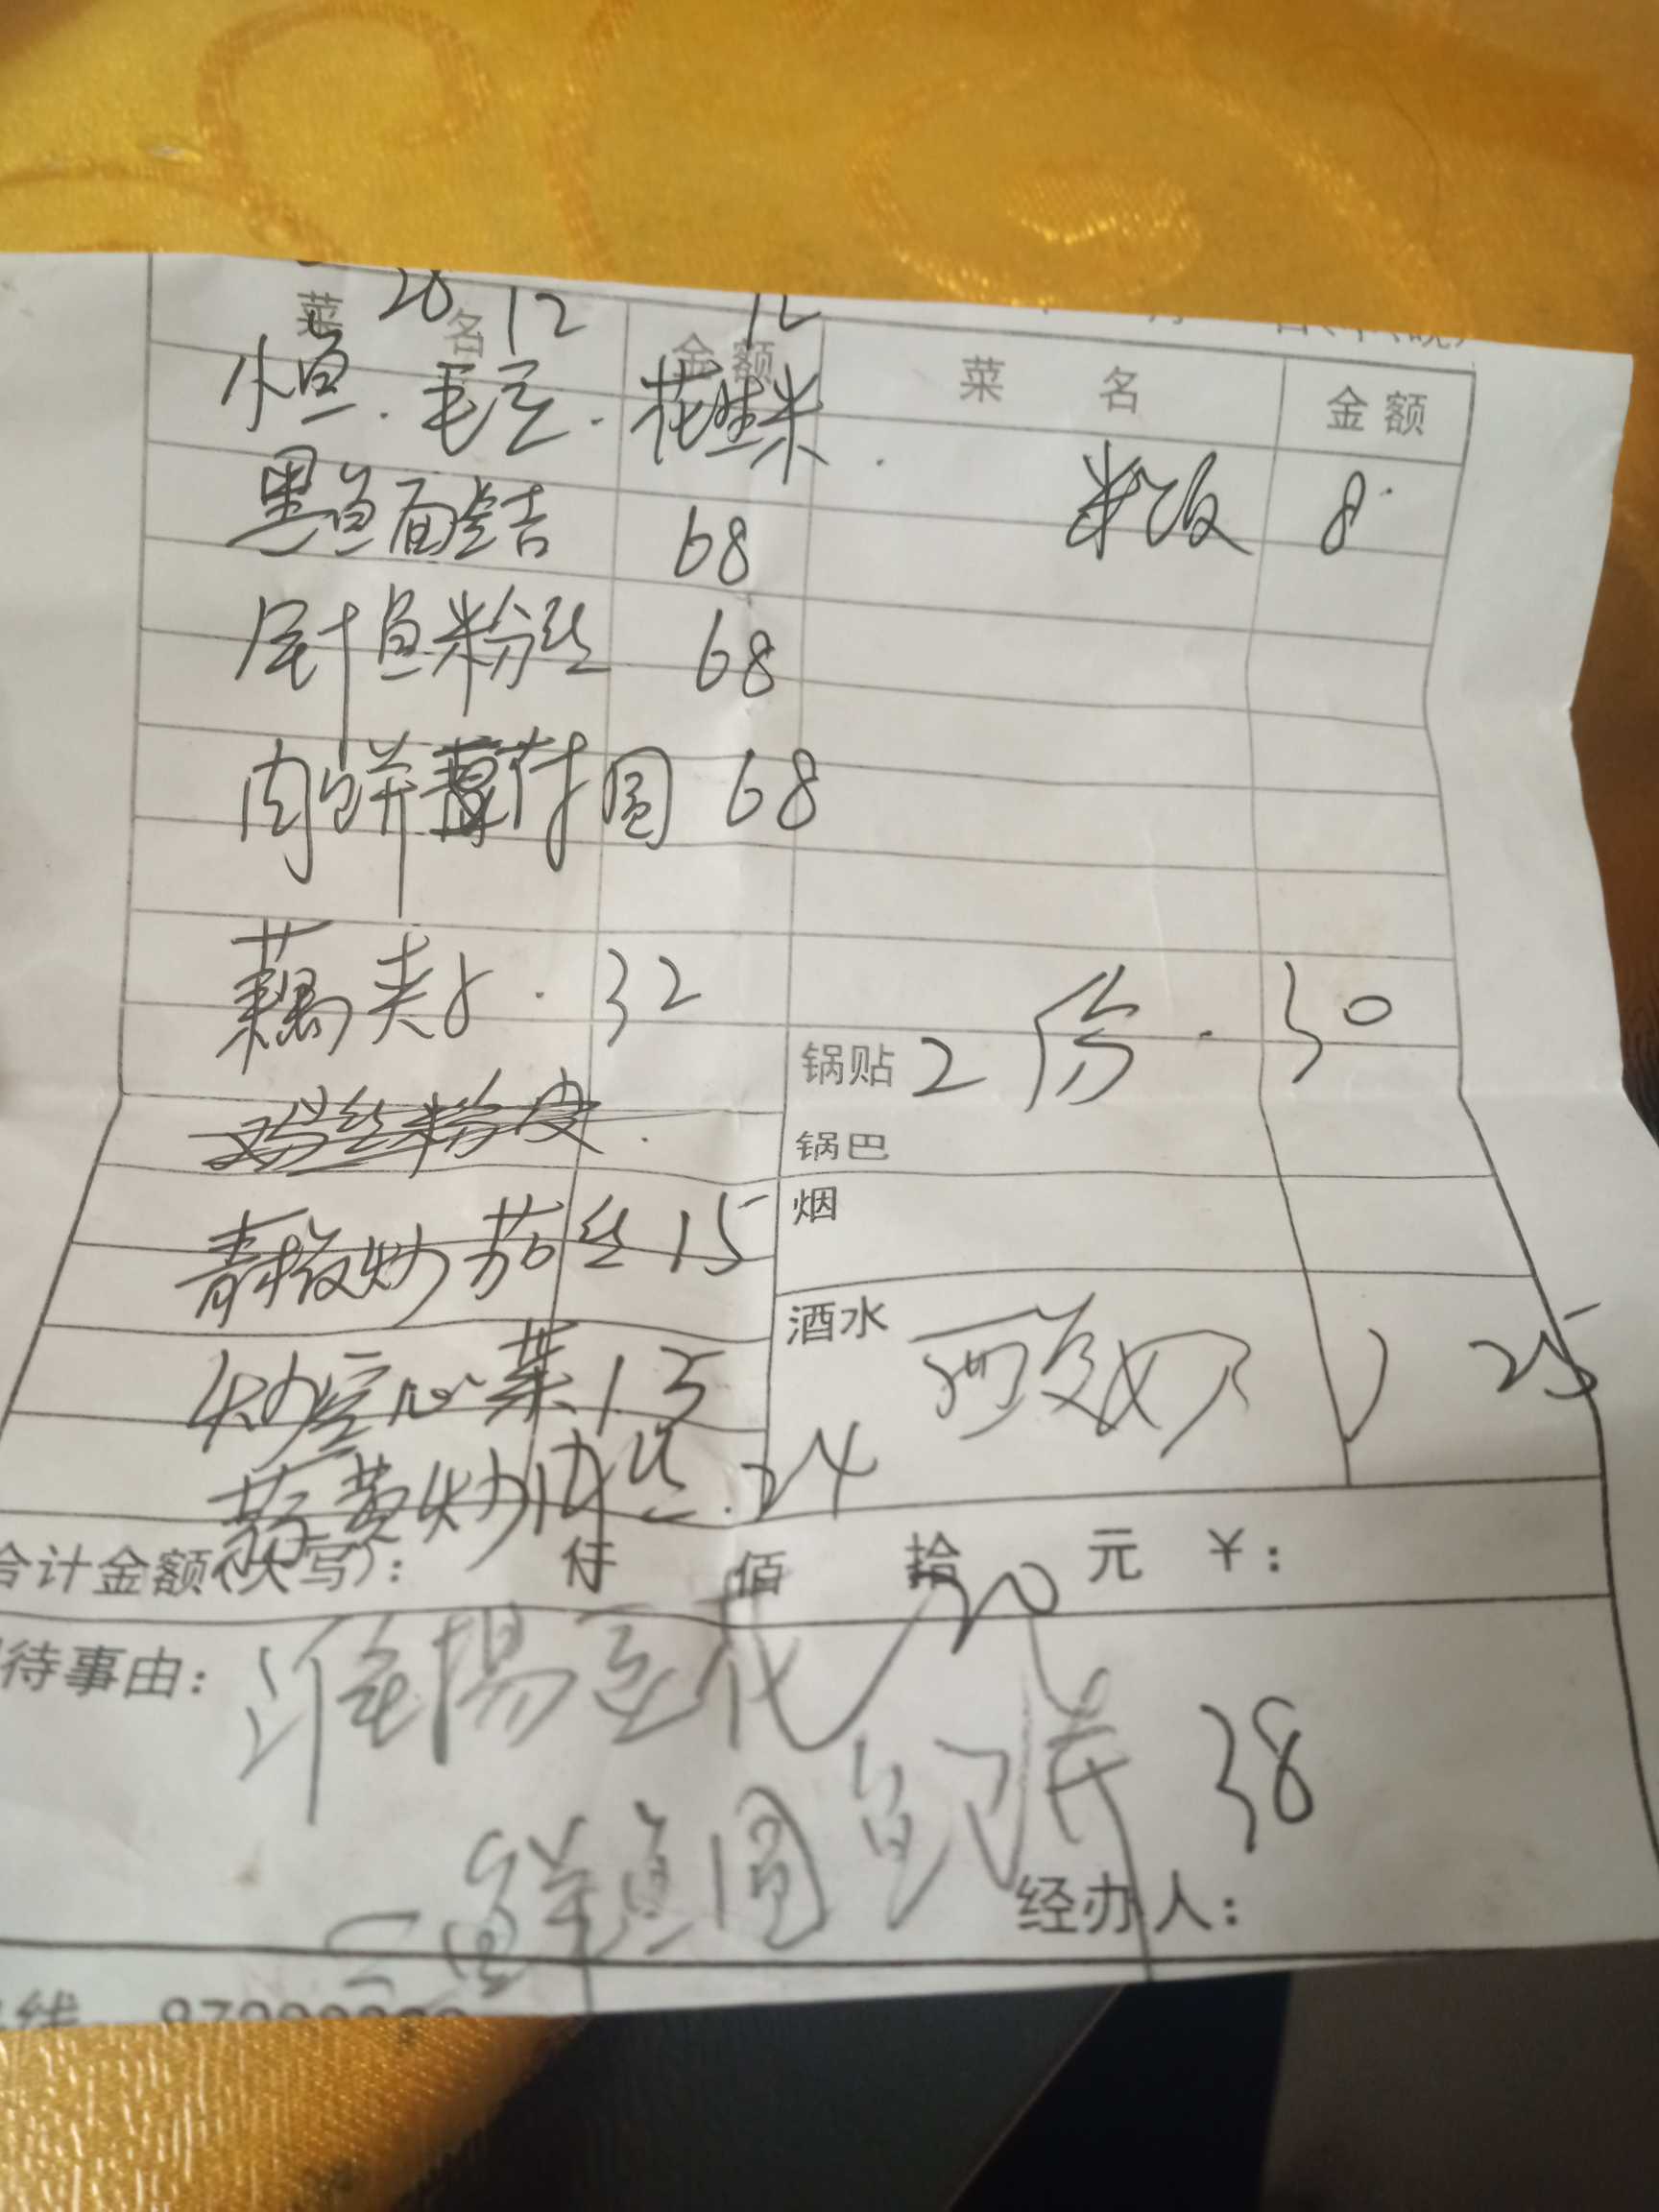 28 12 12
菜 名 金额 菜 名 金额
小鱼．毛豆．花生米．
黑鱼面结 68 米饭 8
鱼粉丝 68
肉饼 圆 68
藕夹子．32
锅贴 2份．30
鸡丝粉皮．
锅巴
青椒炒茄丝 15
烟
炒空心菜 15
酒水 酸奶 1 25
炒肉丝．24
合计金额(大写)： 仟 佰 拾 元 ￥：
待事由：
淮揚豆花 20
鱼 38
三鲜鱼圆
经办人：